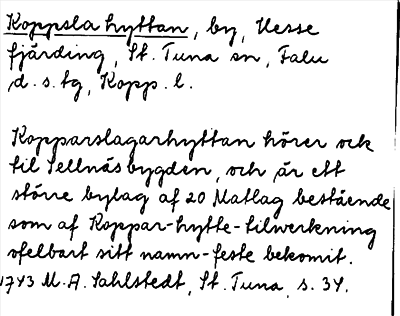 Koppslahyttan, by, Uesse
fjärding, St. Tuna sn, Falu
d.s. tg, Kopp. l.
Kopparslagarhyttan hörer ock
til Sellnäsbygden, och är ett
större bylag af 20 Matlag bestående
som af Koppar-hytte-tilwerkning
ofelbart sitt namn-feste bekomit.
1743 M. A. Sahlstedt, St. Tuna, s. 34.